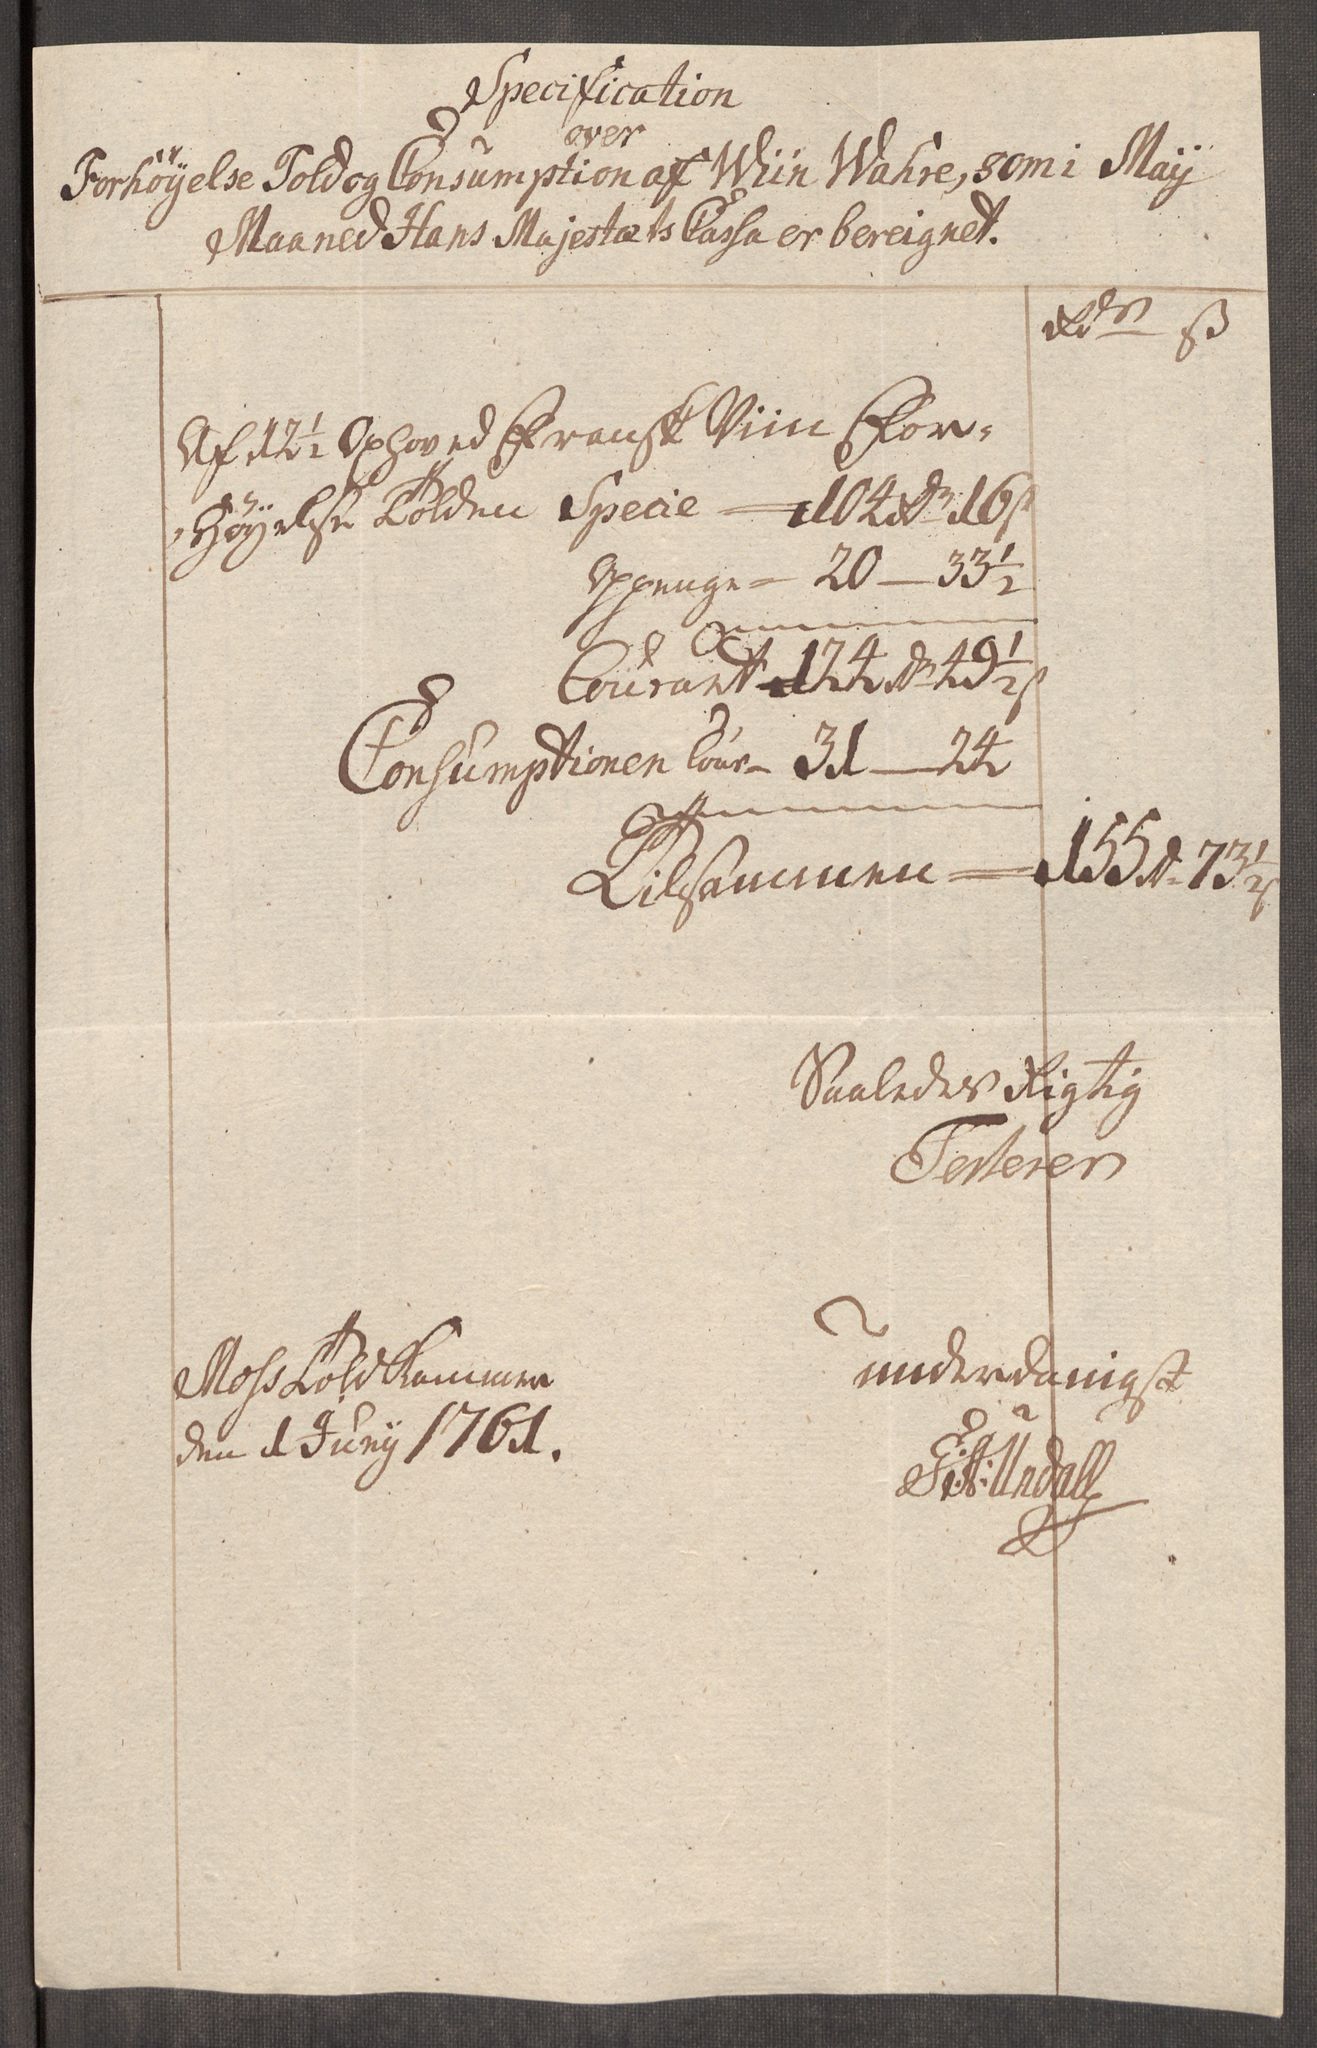 Specification
over
Forhöÿelse Told og Consumption af Wiin Wahre, som i Maÿ
Maaned Hans Majestæts Cassa er bereignet.
Rdr ß
Af 12½ Oxhoved Fransk Viin For-
höÿelse Tolden Specie — 104 rdr 16 ß
Opgenge — 20 — 33½
Courant 124 rdr 49½ ß
Consumptionen Cour — 31 — 24
Tilsammen — 155 rd 73½ ß
Saaledes Rigtig
Testerer
Moss Told Kammer
den 1 Junÿ 1761.
underdanigst
Undall